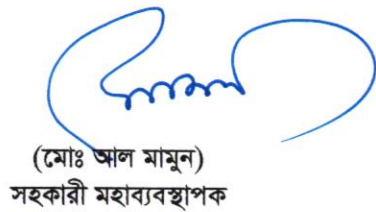 (মোঃ আল মামুন)
সহকারী মহাব্যবস্থাপক